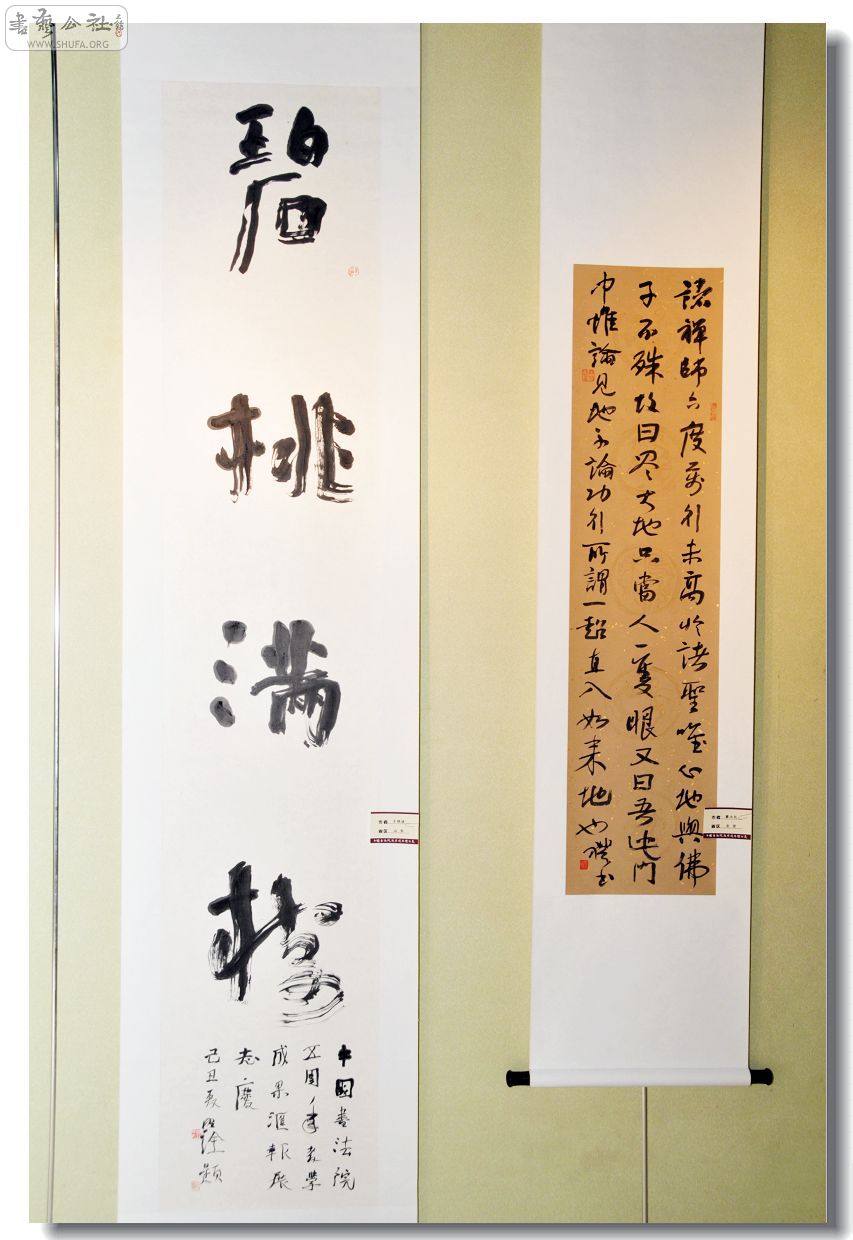 書藝公社
WWW.SHUFA.ORG
碧桃滿樹
中國書法院
五周年教學
成果滙報展
志慶
己丑夏題
諸禪師六度萬行未高於諸聖唯心地與佛
子不殊故曰盡大地只當人一隻眼又曰吾此門
中惟論見地不論功行所謂一超直入如来地也書